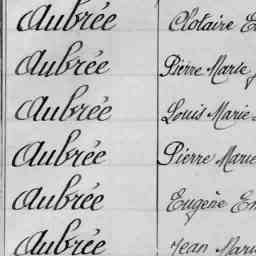 Aubrée Clotaire
Aubrée Pierre Marie
Aubrée Louis Marie
Aubrée Pierre Marie
Aubrée Eugène
Aubrée Jean Marie